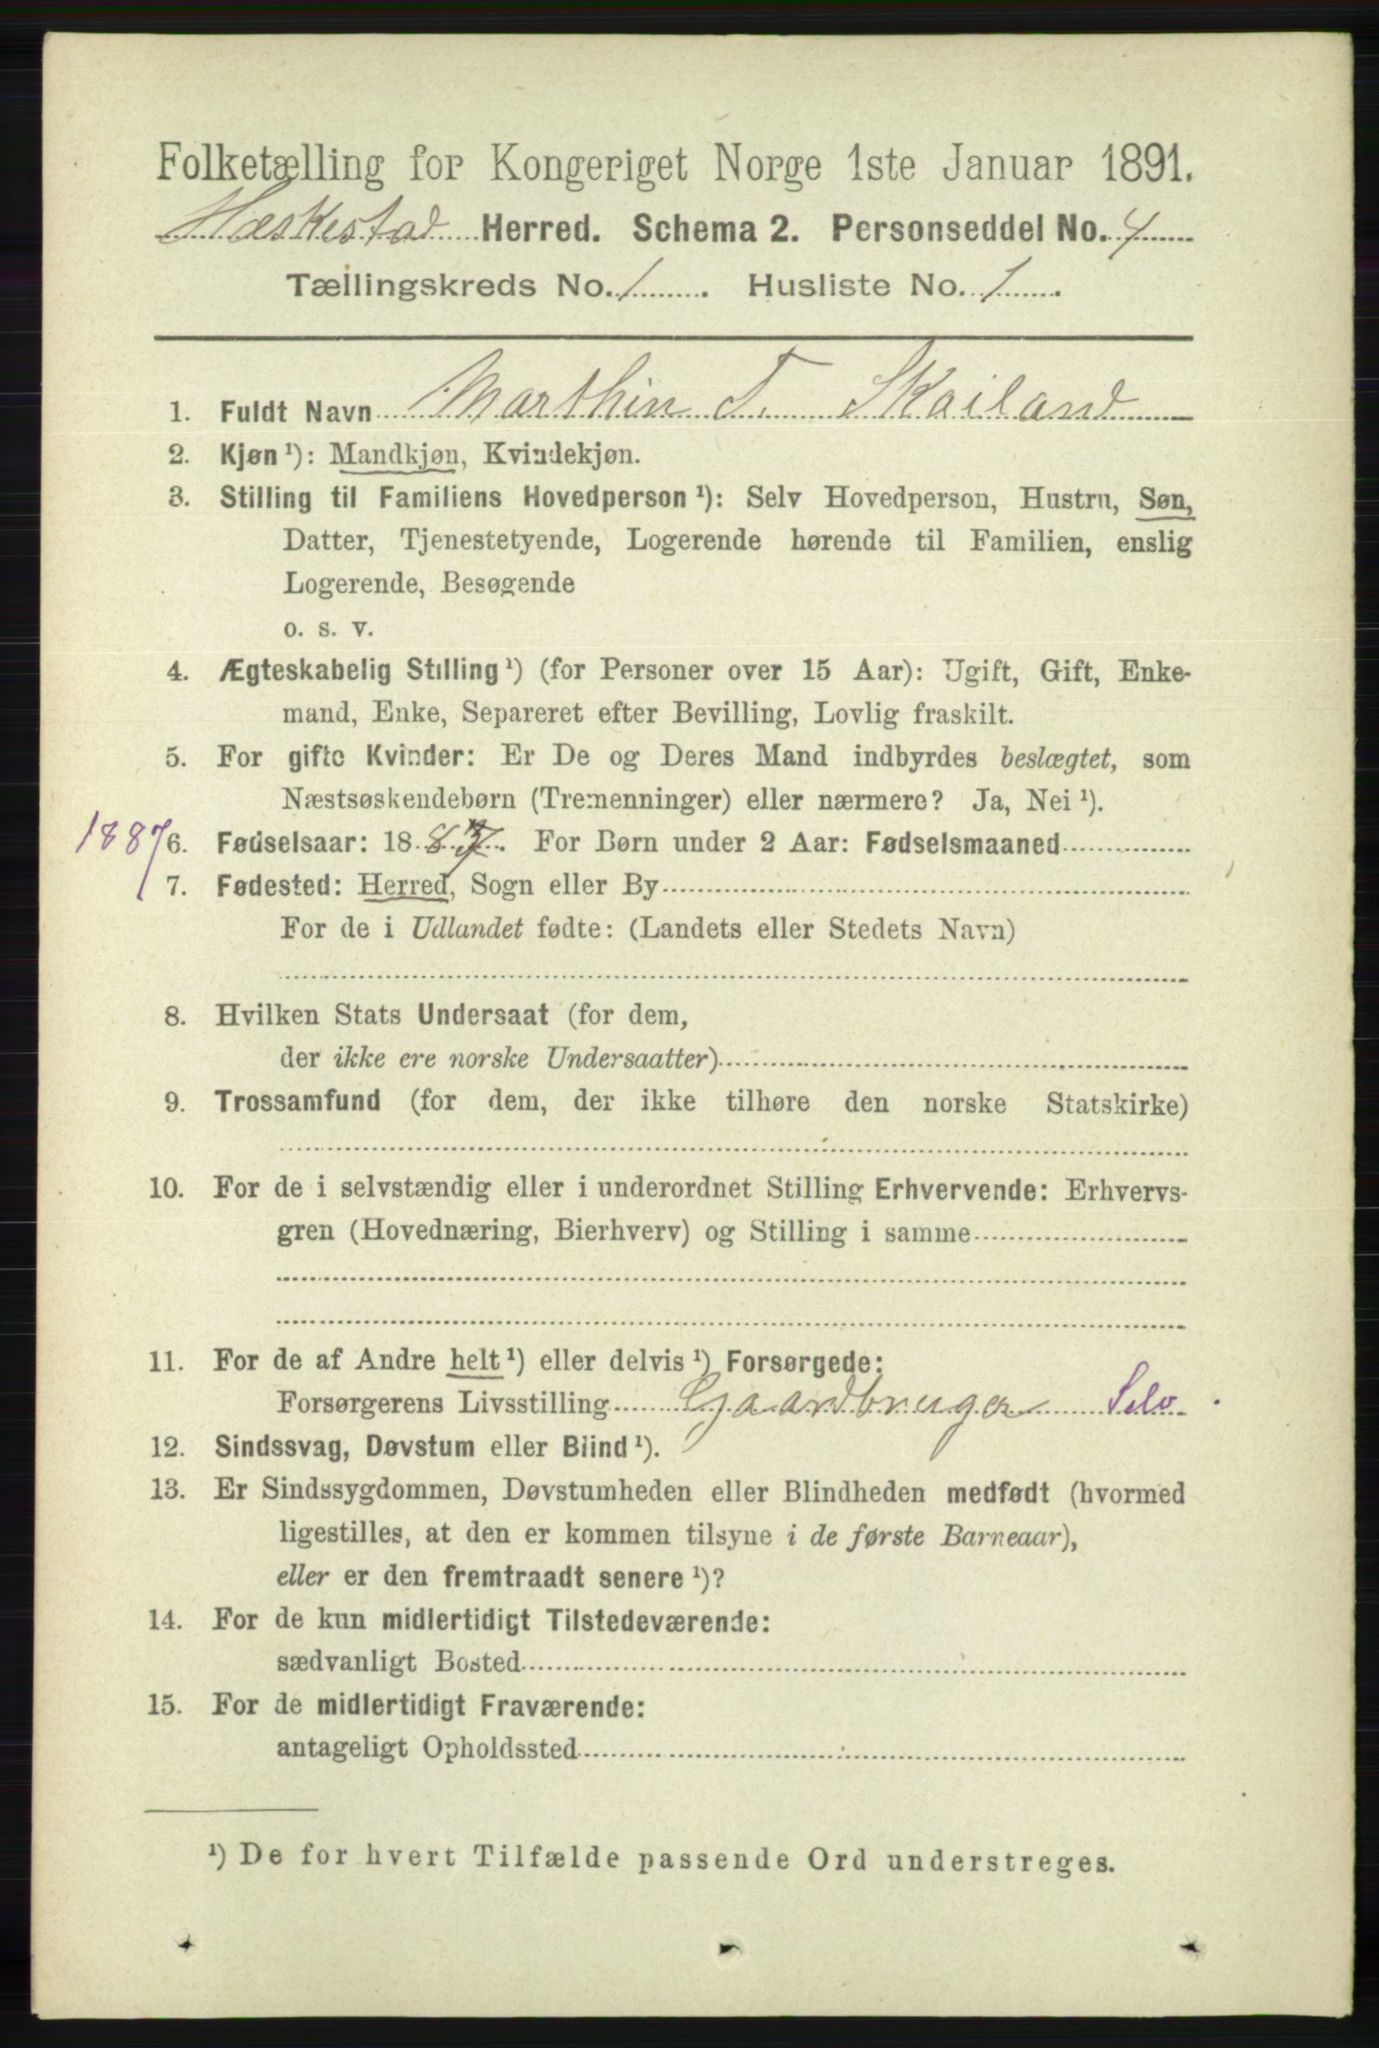 Folketælling for Kongeriget Norge 1ste Januar 1891.
Heskestad Herred. Schema 2. Personseddel No. 4
Tællingskreds No. 1. Husliste No. 1.
1. Fuldt Navn Marthin T. Skailand
2. Kjøn¹): Mandkjøn, Kvindekjøn.
3. Stilling til Familiens Hovedperson¹): Selv Hovedperson, Hustru, Søn,
Datter, Tjenestetyende, Logerende hørende til Familien, enslig
Logerende, Besøgende
o. s. v.
4. Ægteskabelig Stilling¹) (for Personer over 15 Aar): Ugift, Gift, Enke-
mand, Enke, Separeret efter Bevilling, Lovlig fraskilt.
5. For gifte Kvinder: Er De og Deres Mand indbyrdes beslægtet, som
Næstsøskendebørn (Tremenninger) eller nærmere? Ja, Nei¹).
1887 6. Fødselsaar: 1887. For Børn under 2 Aar: Fødselsmaaned
7. Fødested: Herred, Sogn eller By
For de i Udlandet fødte: (Landets eller Stedets Navn)
8. Hvilken Stats Undersaat (for dem,
der ikke ere norske Undersaatter)
9. Trossamfund (for dem, der ikke tilhøre den norske Statskirke)
10. For de i selvstændig eller i underordnet Stilling Erhvervende: Erhvervs-
gren (Hovednæring, Bierhverv) og Stilling i samme
11. For de af Andre helt¹) eller delvis¹) Forsørgede:
Forsørgerens Livsstilling Gaardbruger Selv.
12. Sindssvag, Døvstum eller Blind¹).
13. Er Sindssygdommen, Døvstumheden eller Blindheden medfødt (hvormed
ligestilles, at den er kommen tilsyne i de første Barneaar),
eller er den fremtraadt senere¹)?
14. For de kun midlertidigt Tilstedeværende:
sædvanligt Bosted
15. For de midlertidigt Fraværende:
antageligt Opholdssted
¹) De for hvert Tilfælde passende Ord understreges.